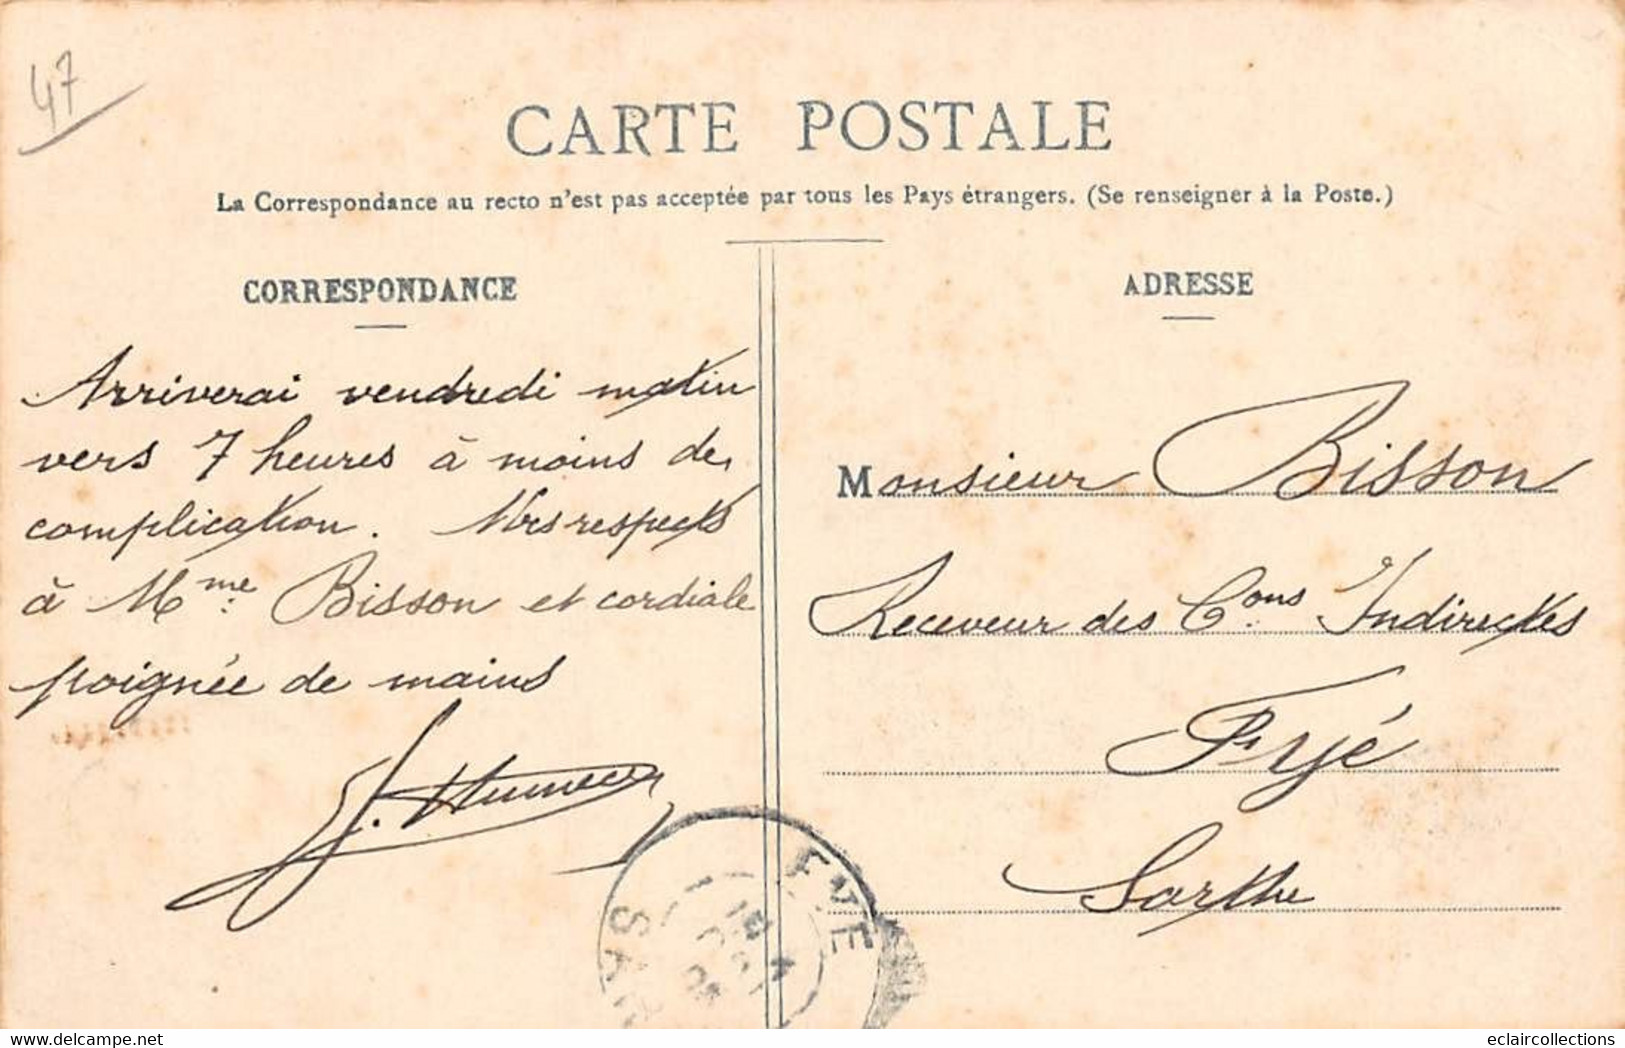 47
CARTE POSTALE
La Correspondance au recto n'est pas acceptée par tous les Pays étrangers. (Se renseigner à la Poste.)
CORRESPONDANCE
Arriverai vendredi matin
vers 7 heures à moins de
complication. Mes respects
à Mme Bisson et cordiale
poignée de mains
ADRESSE
Monsieur Bisson
Receveur des Cons Indirectes
Fyé
Sarthe
SAR
Delcampe.net
eclaircollections